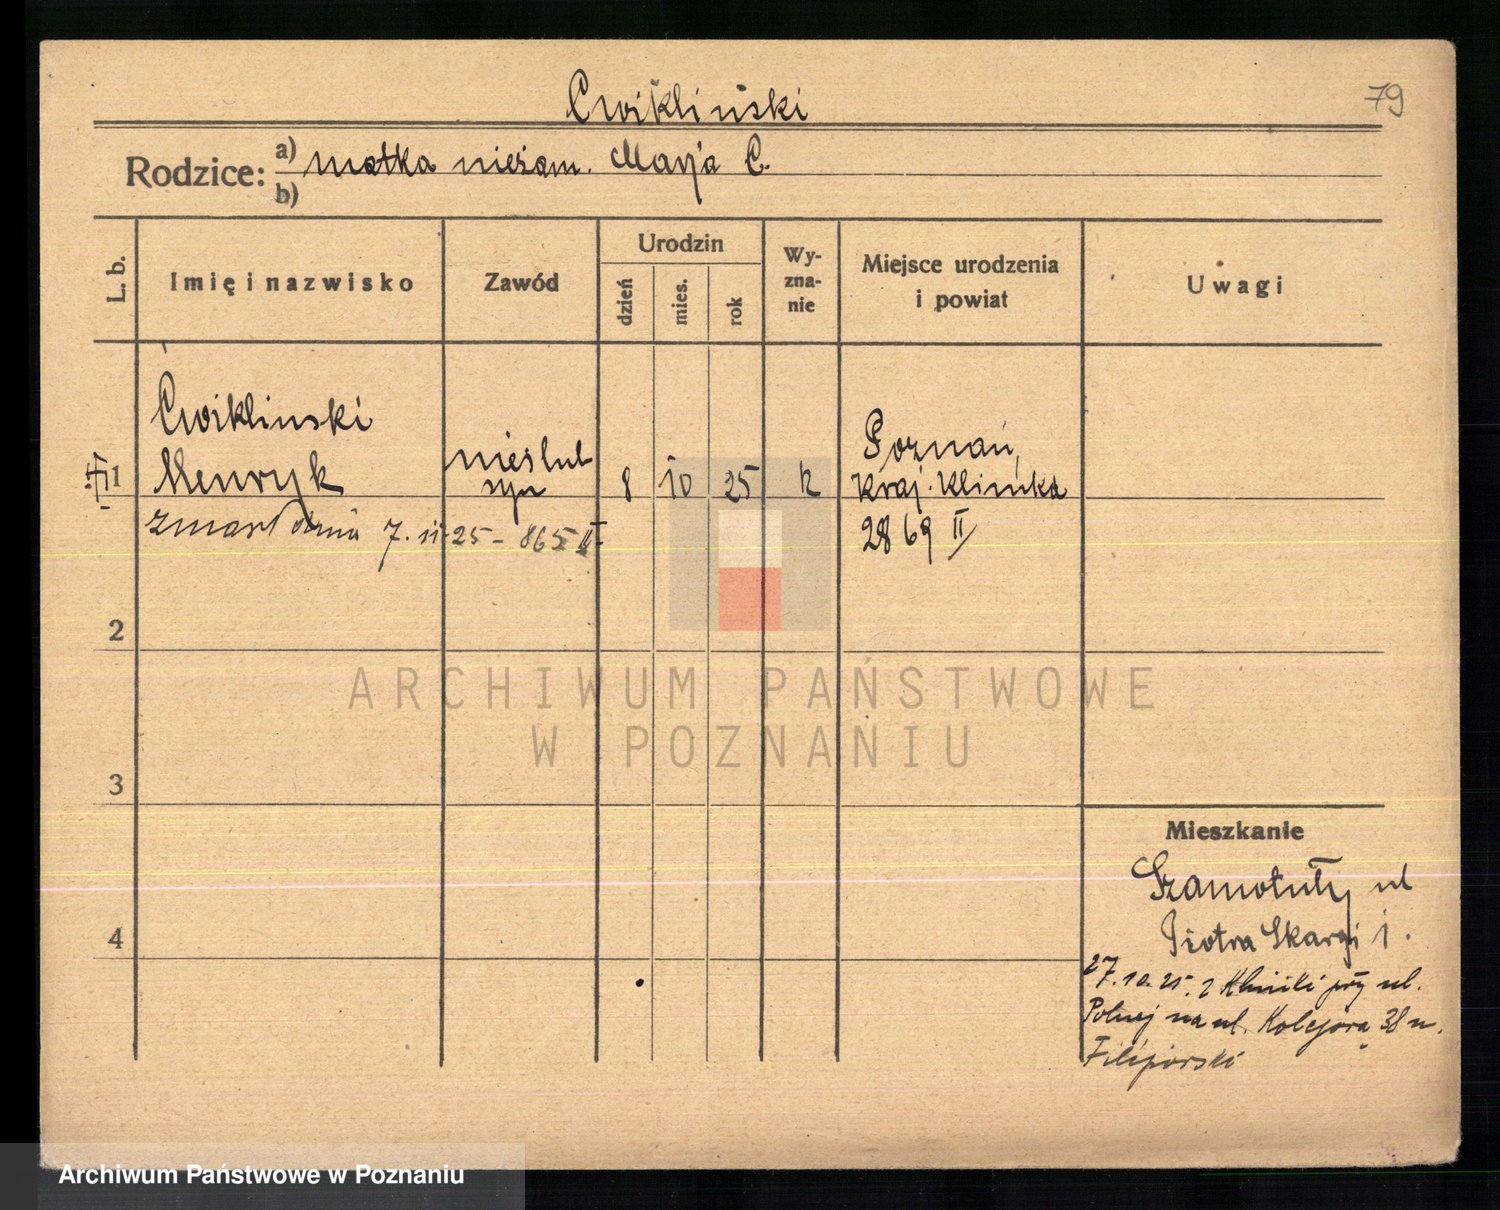 79
Cwikliński
Rodzice: a) matka niezam. Marja C.
b)
L. b.
Imię i nazwisko
Zawód
Urodzin
dzień
mies.
rok
Wy-
zna-
nie
Miejsce urodzenia
i powiat
Uwagi
1
Cwiklinski
Henryk
zmarł dnia 7.11.25 - 865 II
nieślub
syn
8
10
25
k
Poznań,
Kraj. Klinika
2869 II
2
3
4
Mieszkanie
Szamotuły ul
Piotra Skargi 1.
27.10.25. z Kliniki przy ul.
Polnej na ul. Kolejową 38 u.
ARCHIWUM PAŃSTWOWE
W POZNANIU
Archiwum Państwowe w Poznaniu